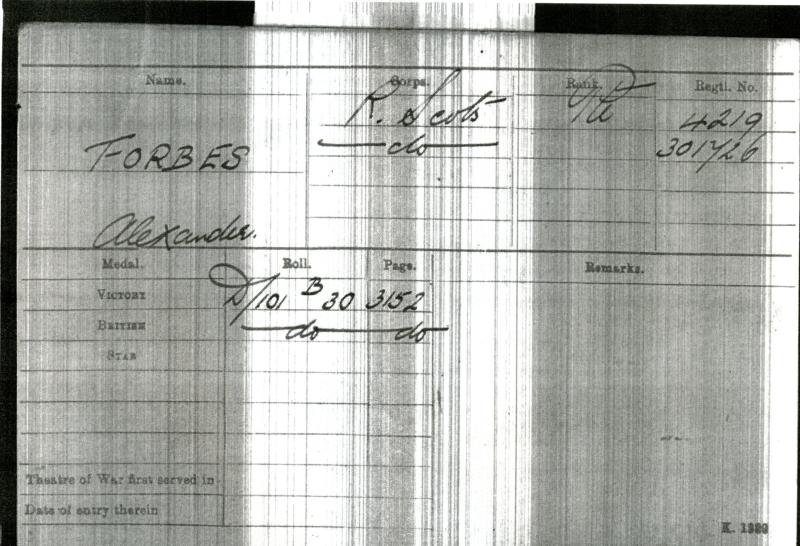 Name. Corps. Rank. Regtl. No.
R. Scots Pte 4219
do 301726
FORBES
Alexander.
Medal. Roll. Page. Remarks.
VICTORY D/101 B 30 3152
BRITISH do do
STAR
Theatre of War first served in
Date of entry therein